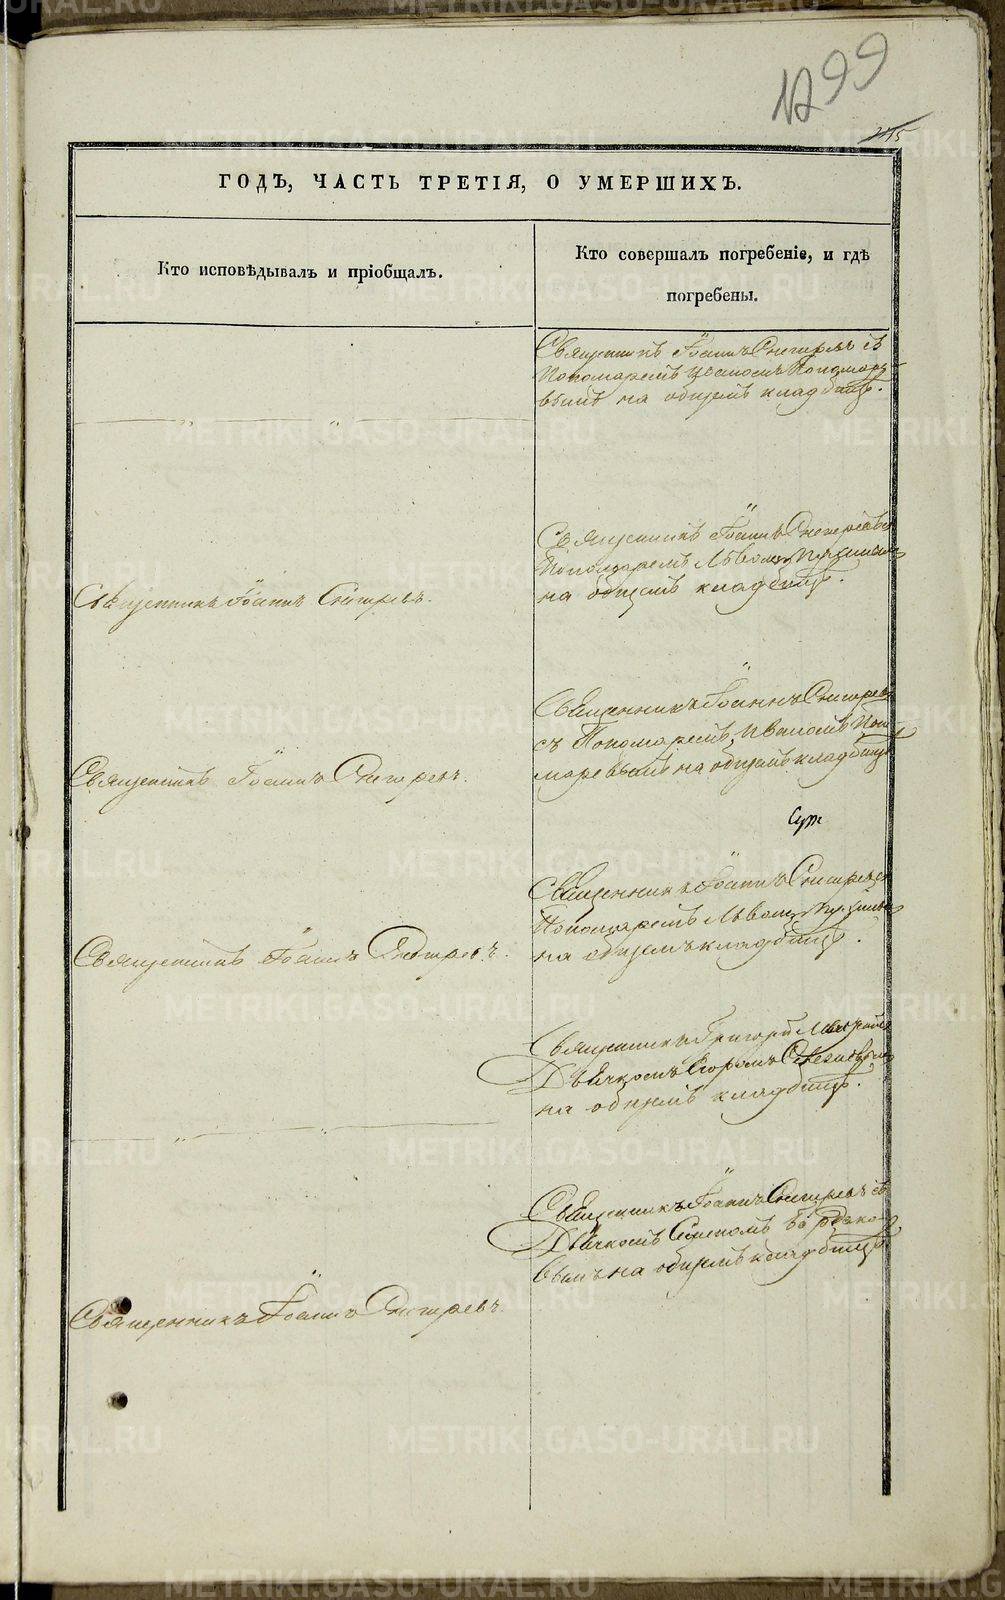 1299
215
ГОДЪ, ЧАСТЬ ТРЕТІЯ, О УМЕРШИХЪ.
Кто исповѣдывалъ и пріобщалъ.
Кто совершалъ погребеніе, и гдѣ
погребены.
Священникъ Іоаннъ Снигиревъ съ
Пономаремъ Иваномъ Пономаре-
вымъ на общемъ кладбищѣ.
Священникъ Іоаннъ Снигиревъ
Пономаремъ Львомъ
на общемъ кладбищѣ.
Священникъ Іоаннъ Снигиревъ.
Священникъ Іоаннъ Снигиревъ
съ Пономаремъ Иваномъ Поно-
маревымъ на общемъ кладбищѣ
Священникъ Іоаннъ Снигиревъ.
Священникъ Іоаннъ Снигиревъ
Пономаремъ Львомъ
на общемъ кладбищѣ.
Священникъ Іоаннъ Снигиревъ.
Священникъ Григорій
Дьячкомъ
на общемъ кладбищѣ.
Священникъ Іоаннъ Снигиревъ съ
Дьячкомъ
вымъ на общемъ кладбищѣ.
Священникъ Іоаннъ Снигиревъ.
METRIKI.GASO-URAL.RU